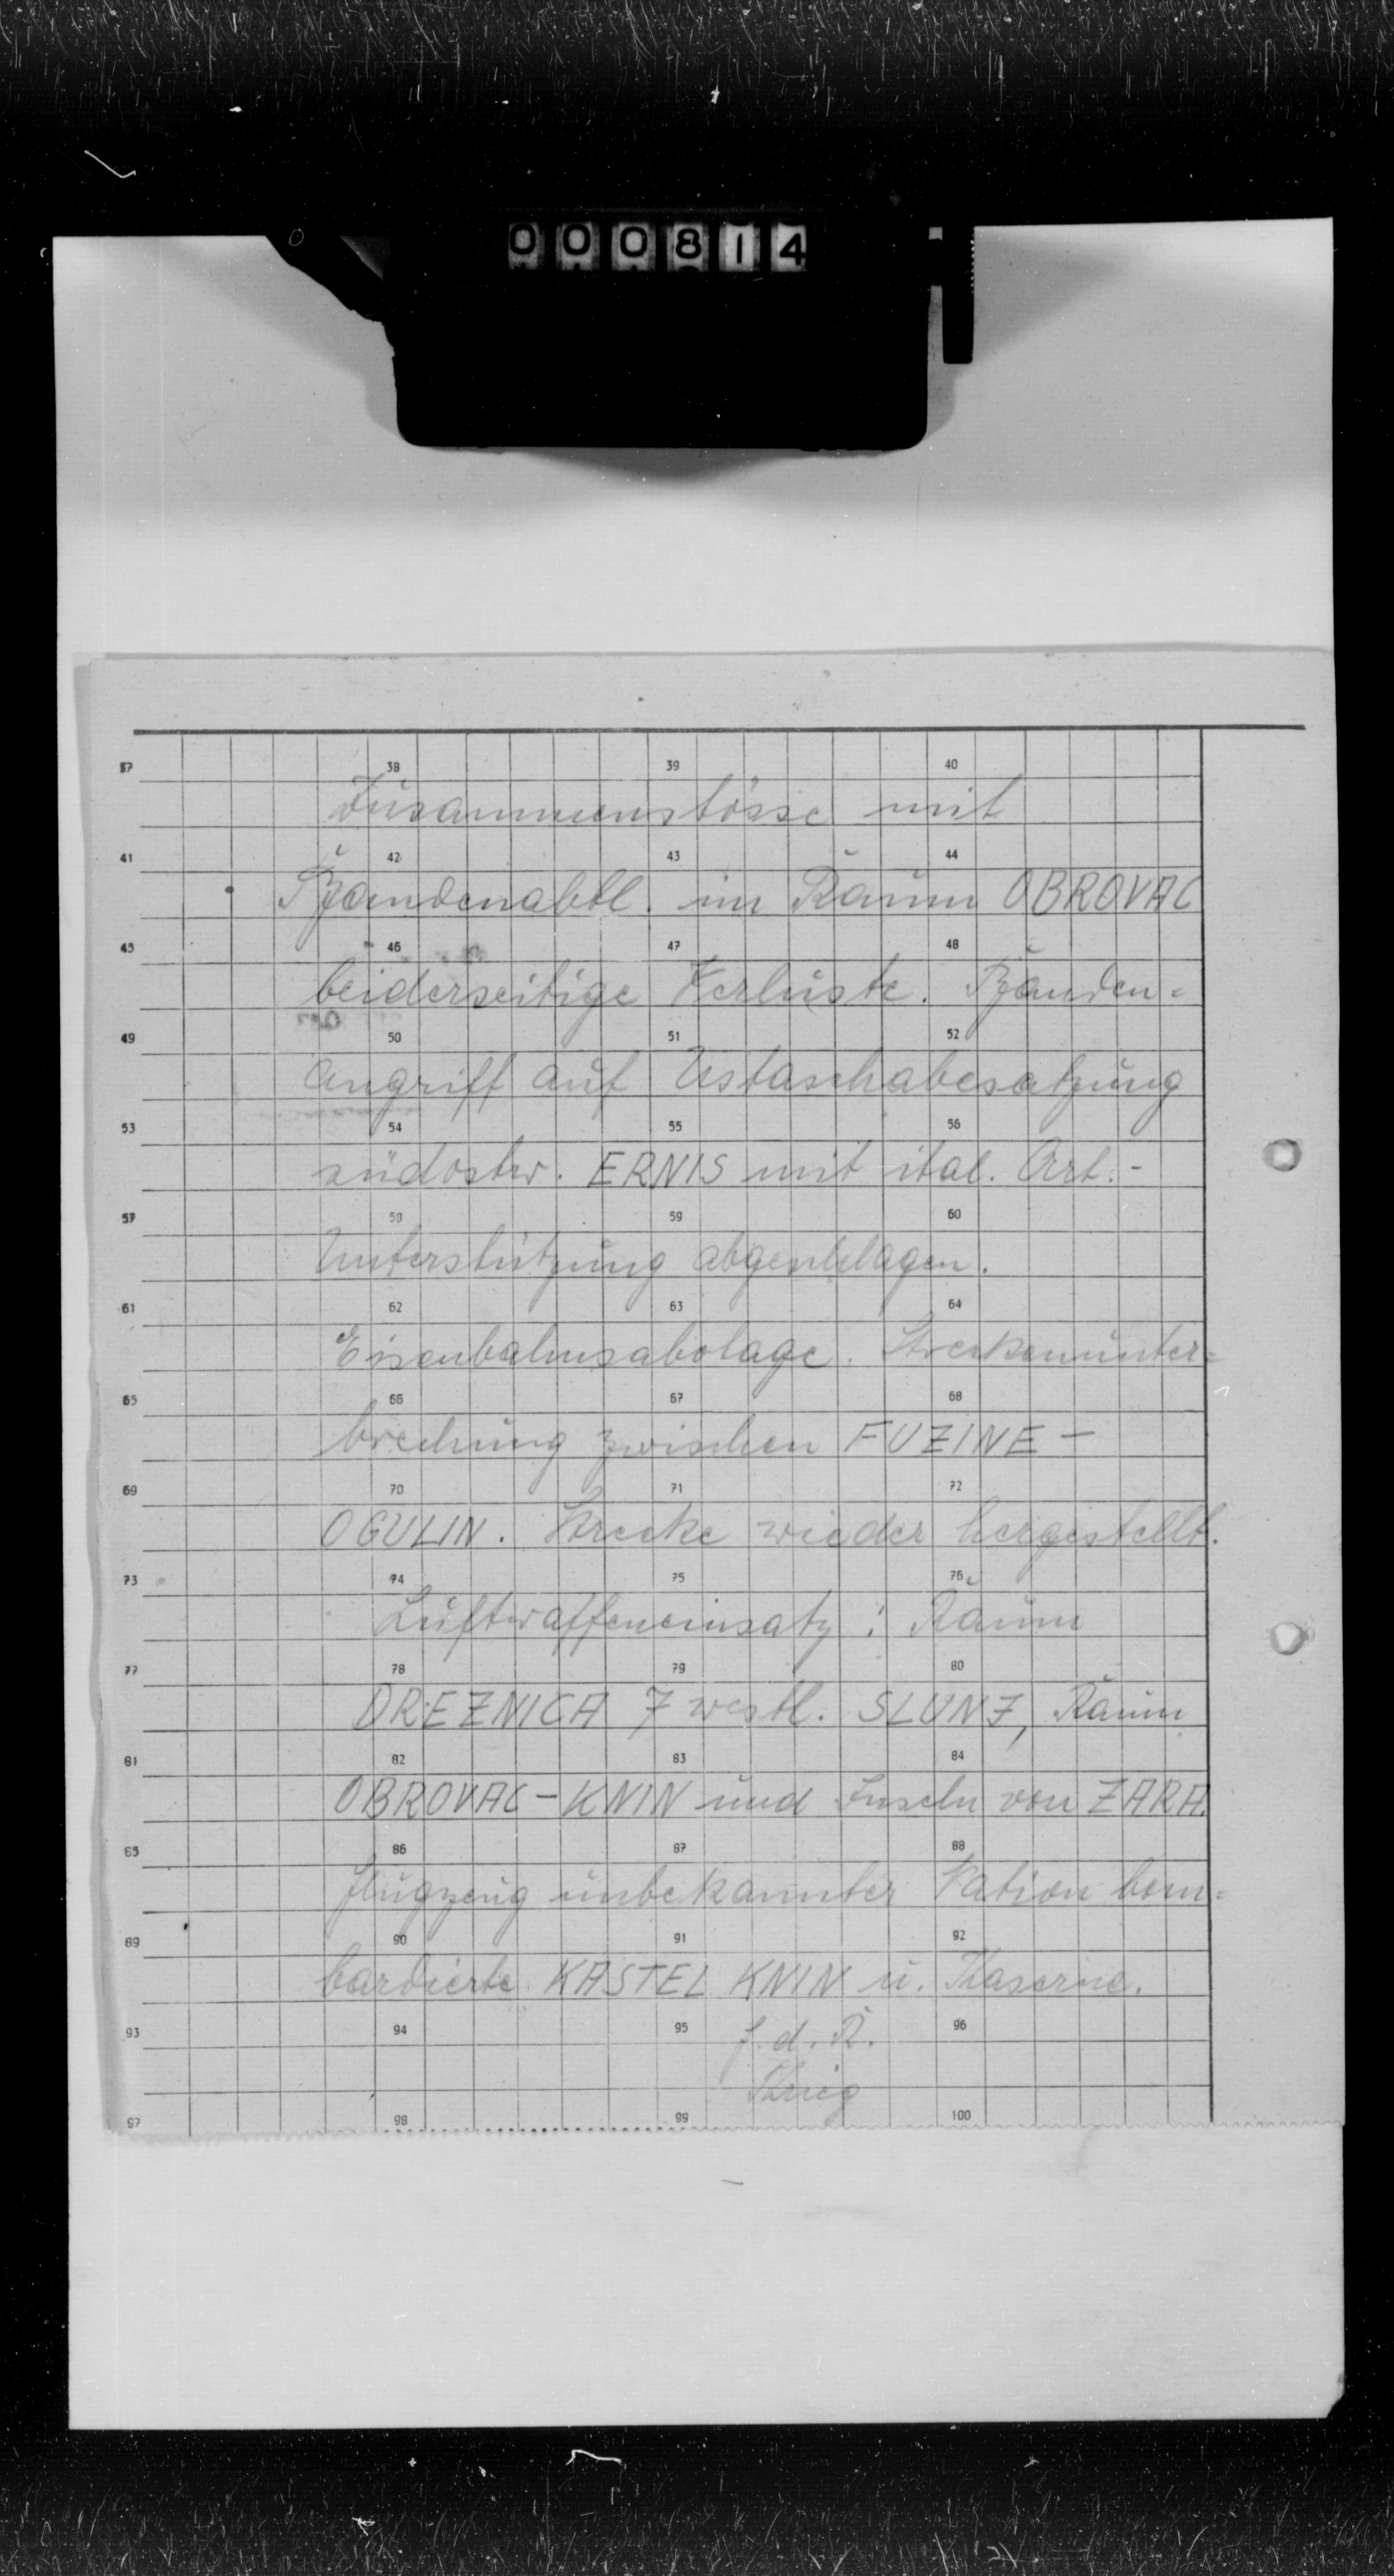 000814
37 38 39 40
Zusammenstösse mit
41 42 43 44
Bandenabtl. im Raum OBROVAC
45 46 47 48
beiderseitige Verluste. Banden=
49 50 51 52
angriff auf Ustaschabesatzung
53 54 55 56
südostw. ERNIS mit ital. Art.-
57 58 59 60
Unterstützung abgeschlagen.
61 62 63 64
Eisenbahnsabotage. Streckenunter=
65 66 67 68
brechung zwischen FUZINE -
69 70 71 72
OGULIN. Strecke wieder hergestellt.
73 74 75 76
Luftwaffeneinsatz: Raum
77 78 79 80
DREZNICA 7 westl. SLUNJ, Raum
81 82 83 84
OBROVAC - KNIN und Inseln von ZARA.
85 86 87 88
Flugzeug unbekannter Nation bom=
89 90 91 92
bardierte KASTEL KNIN u. Kaserne.
93 94 95 f.d.R. 96
97 98 99 100